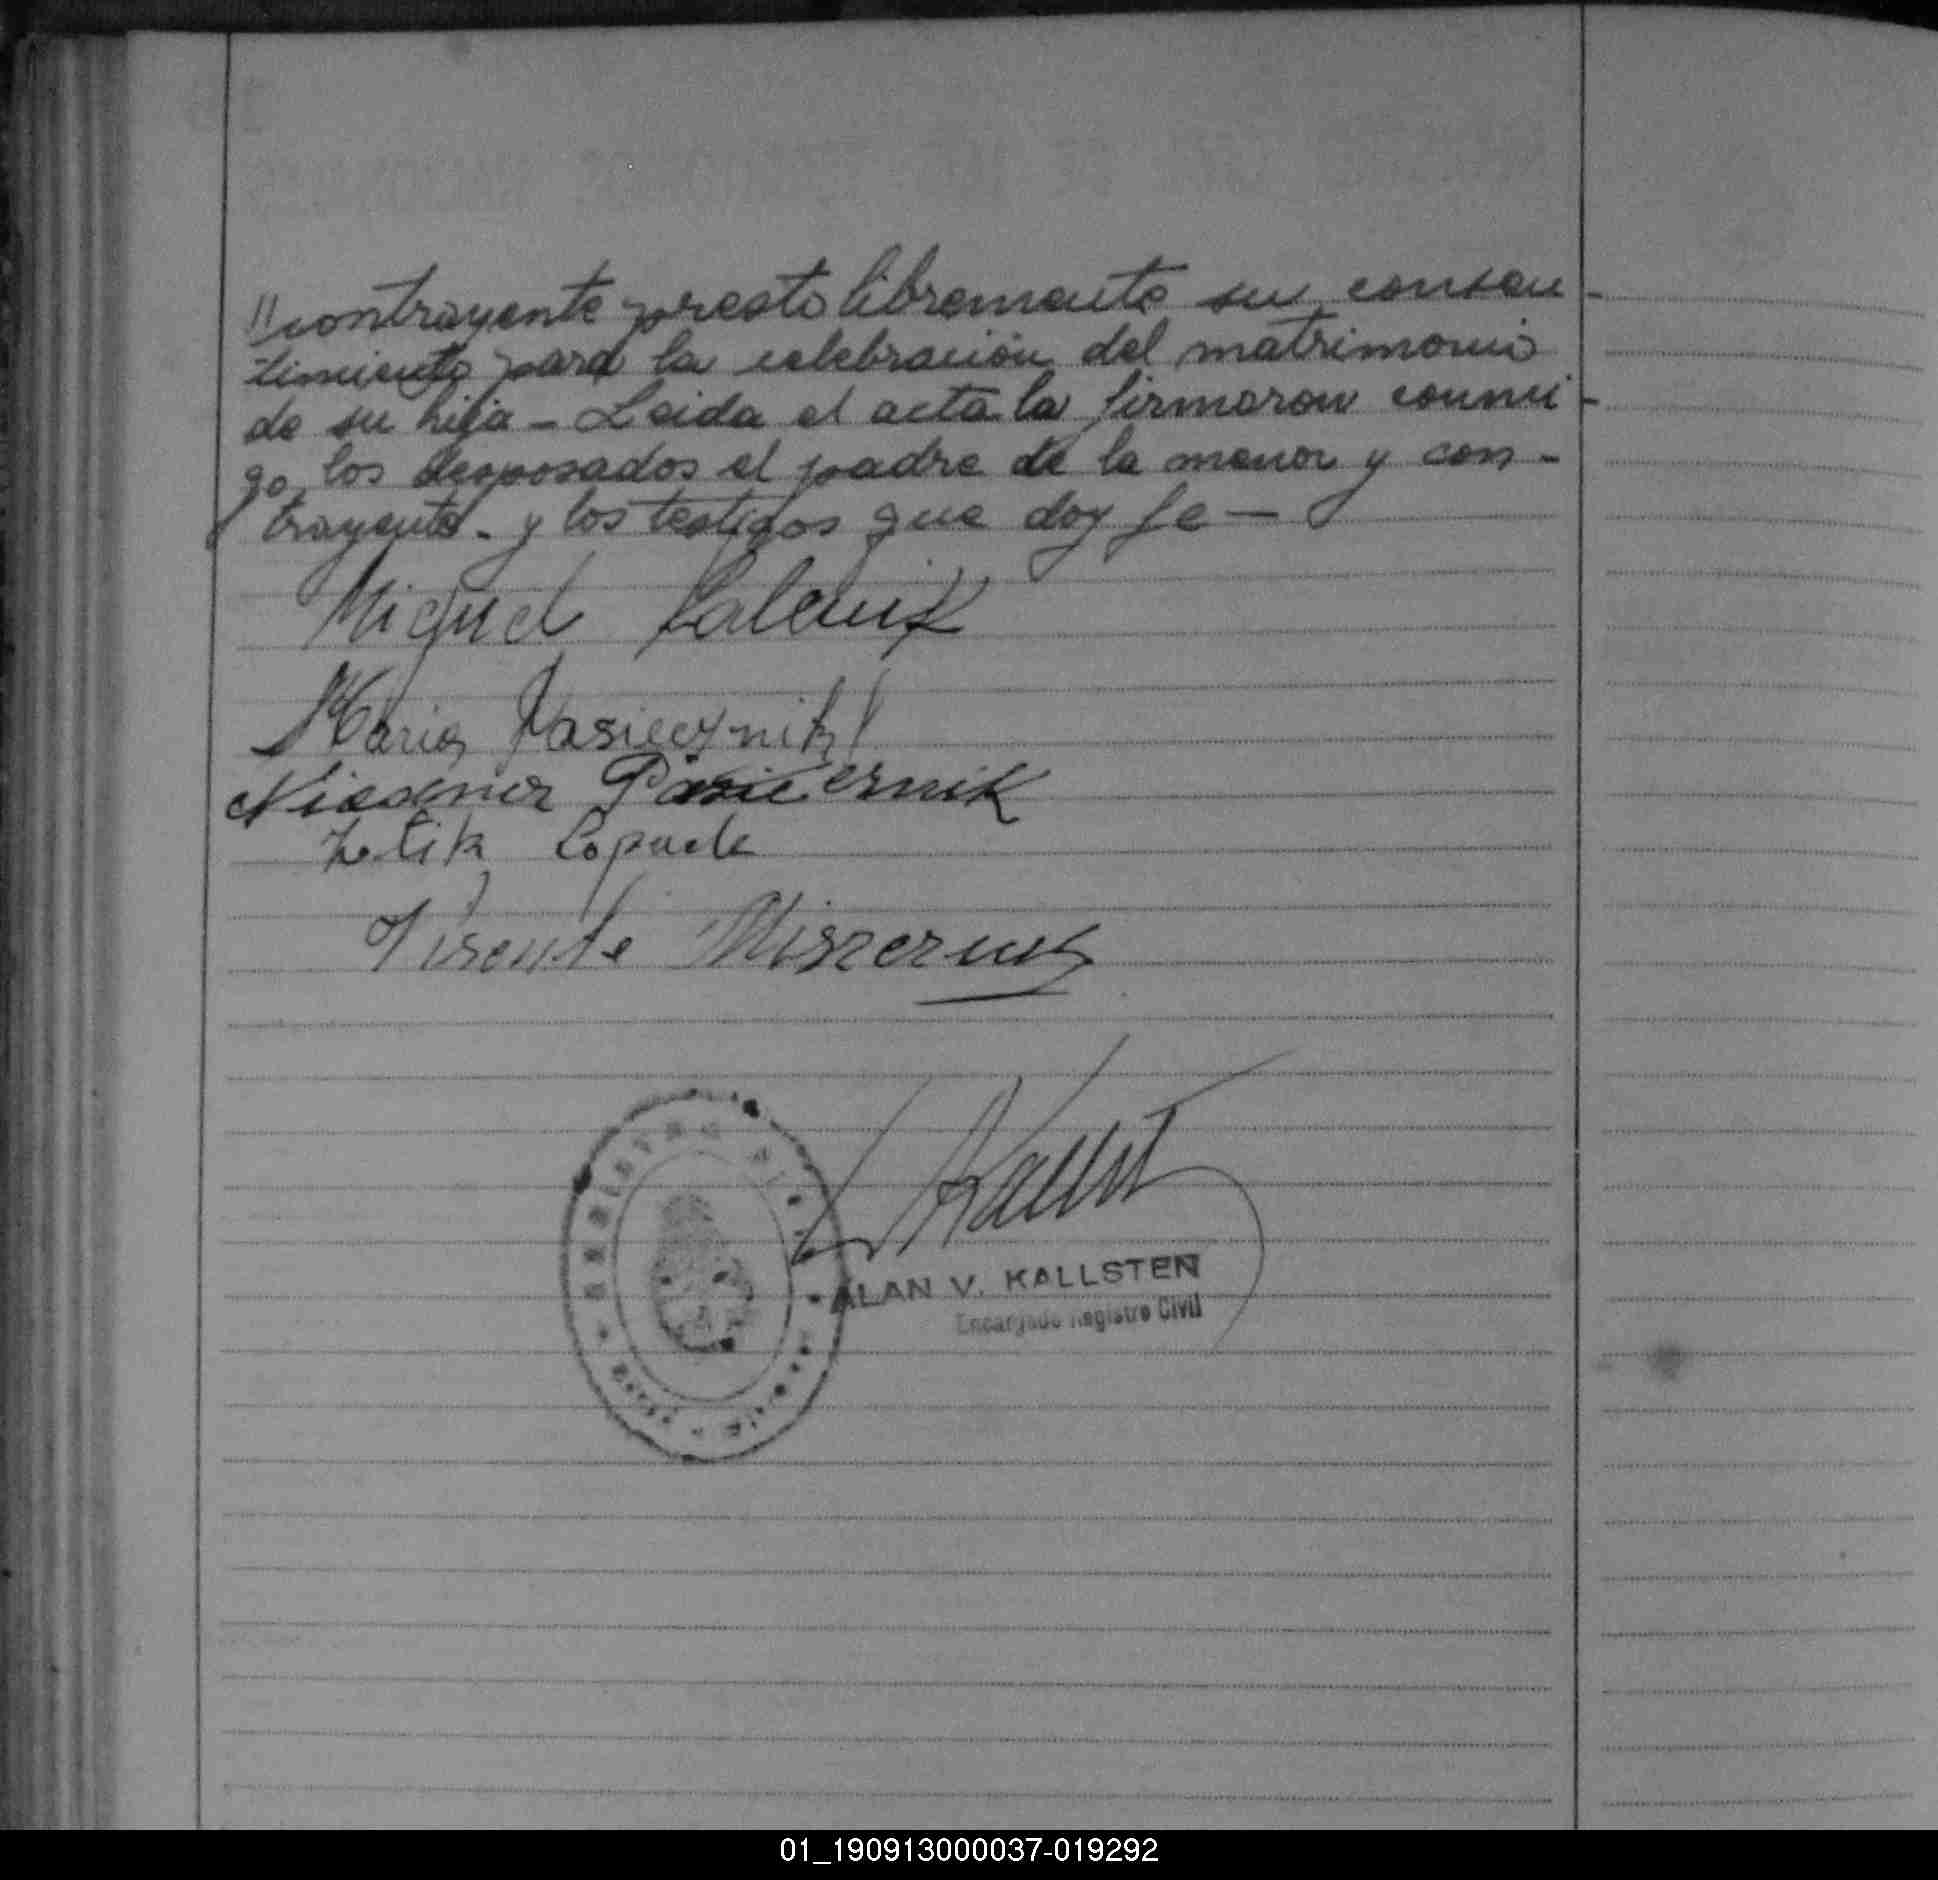 "contrayente presto libremente su consen-
timiento para la celebración del matrimonio
de su hija - Leida el acta la firmaron conmi-
go, los desposados el padre de la menor y con-
trayente - y los testigos que doy fe -
Miguel
Maria Pasiecznik
Pasiecernik
Kopack
Visente Miszeruk
Kallst
ALAN V. KALLSTEN
Encargado Registro Civil
01_190913000037-019292